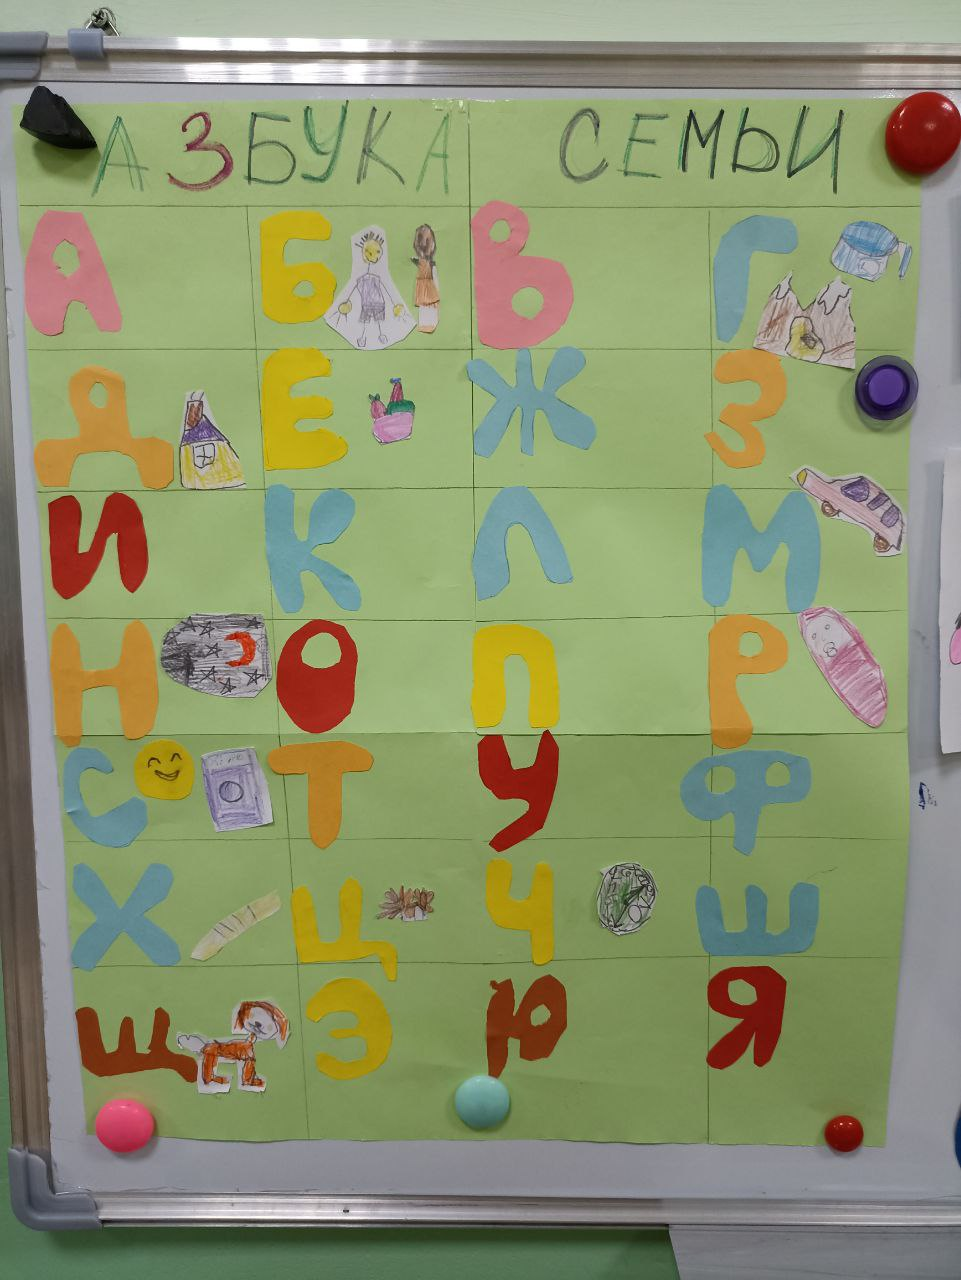 АЗБУКА СЕМЬИ
А Б В Г
Д Е Ж З
И К Л М
Н О П Р
С Т У Ф
Х Ц Ч Ш
Щ Э Ю Я